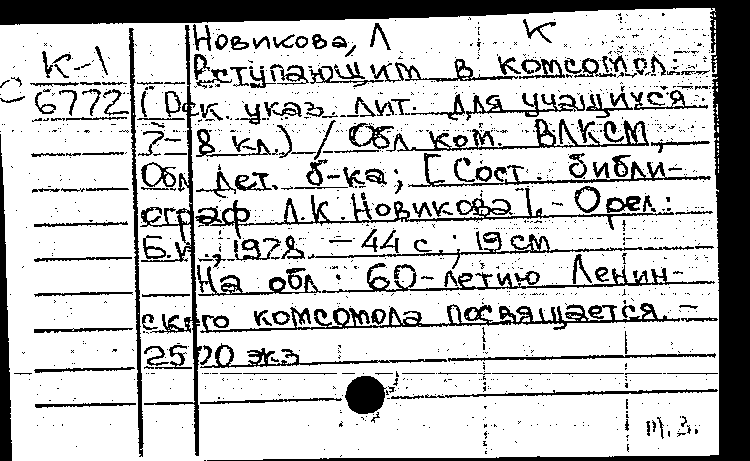 Новикова, Л К
К-1 Вступающим в комсомол:
6772 (Рек. указ. лит. для учащихся
7-8 кл.) / Обл. ком. ВЛКСМ,
Обл. дет. б-ка; [Сост. библи-
ограф Л.К. Новикова]. - Орел:
Б.и., 1978. - 44 с.; 19 см
На обл.: 60-летию Ленин-
ского комсомола посвящается. -
2500 экз
т.з.